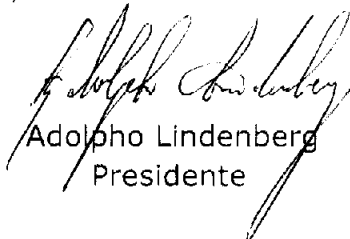 Adolpho Lindenberg
Adolpho Lindenberg
Presidente